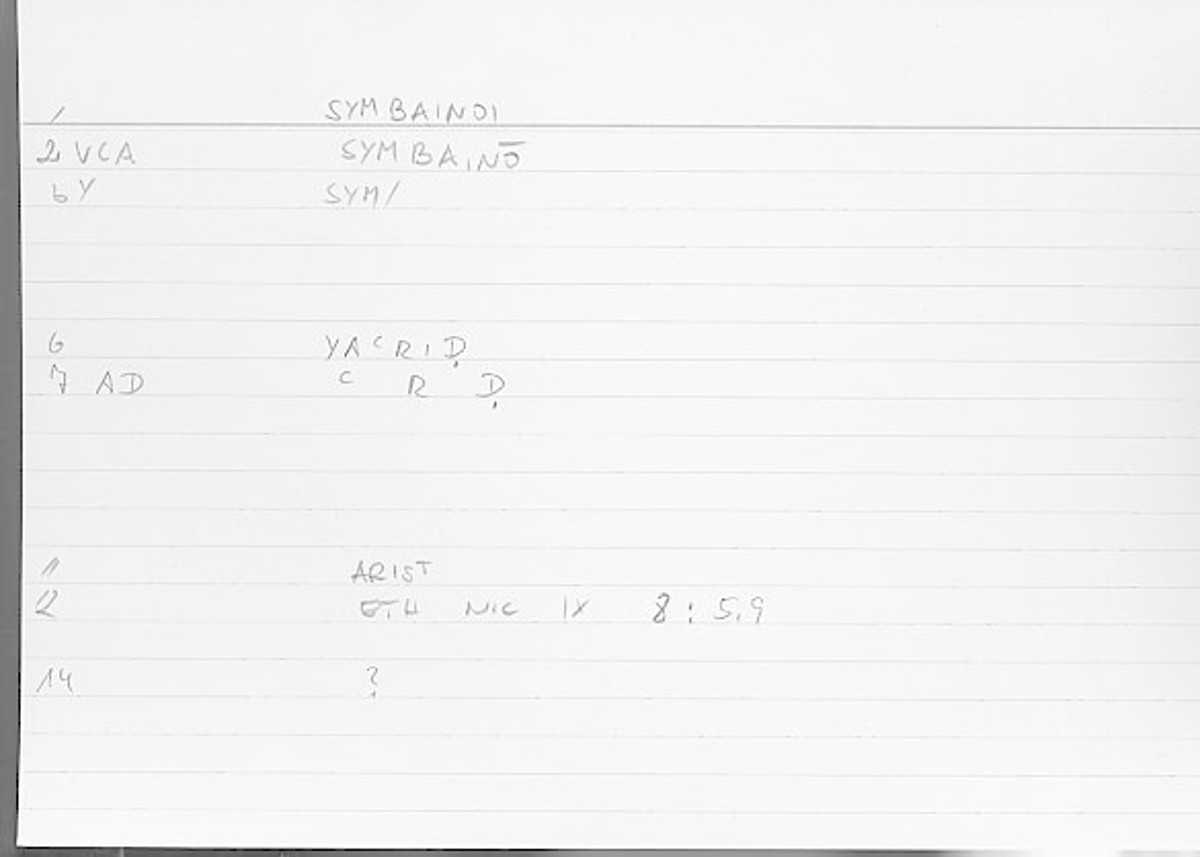 1 SYMBAINOI
2 VCA SYMBAINŌ
b Y SYM/
6 YACRIḌ
7 AD C R Ḍ
11 ARIST
12 ETH NIC IX 8 : 5.9
14 ?